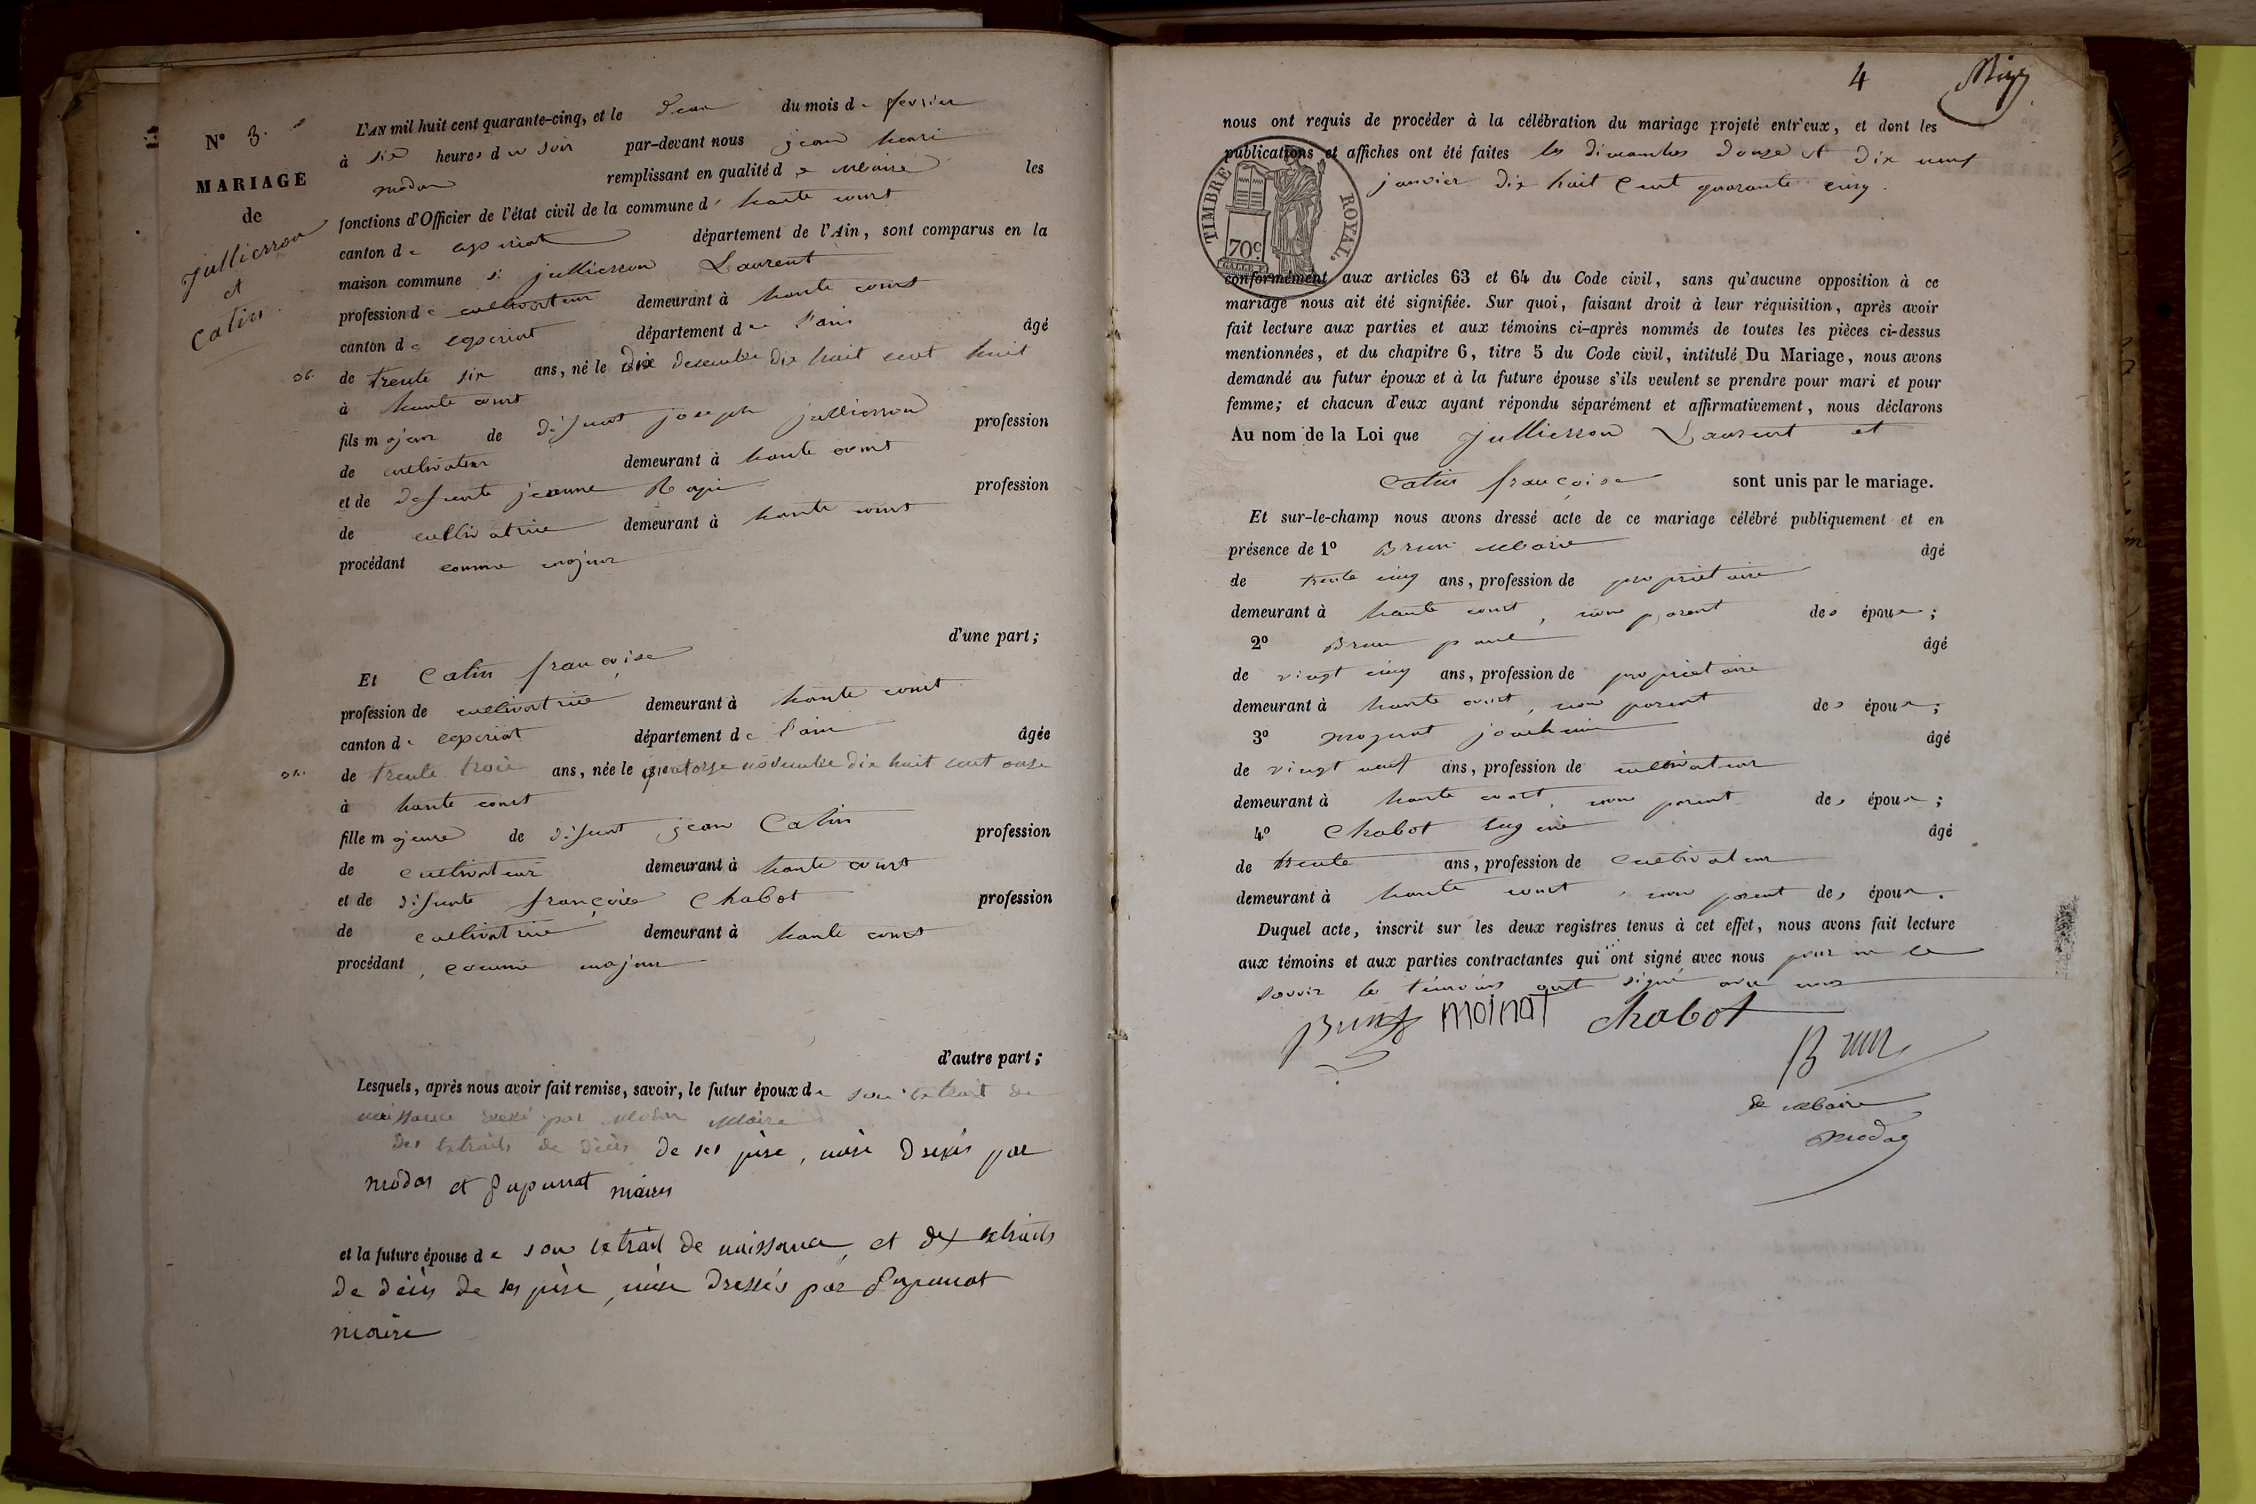 N° 3.
MARIAGE
de
jullierron
et
Catin
L'AN mil huit cent quarante-cinq, et le deux du mois de fevrier
à six heures du soir par-devant nous jean henri
modas remplissant en qualité de Maire les
fonctions d'Officier de l'état civil de la commune d' haute court
canton de ceyzeriat département de l'Ain, sont comparus en la
maison commune jullierron Laurent
profession de cultivateur demeurant à haute court
canton de ceyzeriat département de l'ain âgé
36. de trente six ans, né le dix desembre dix huit cent huit
à haute court
fils majeur de défunt joseph jullierron profession
de cultivateur demeurant à haute court
et de defunte jeanne profession
de cultivatrice demeurant à haute court
procédant comme majeur
d'une part;
Et Catin françoise
profession de cultivatrice demeurant à haute court
canton de ceyzeriat département de l'ain âgée
de trente trois ans, née le quatorze novembre dix huit cent onze
à haute court
fille majeure de défunt jean Catin profession
de cultivateur demeurant à haute court
et de défunte françoise Chabot profession
de cultivatrice demeurant à haute court
procédant comme majeur
d'autre part;
Lesquels, après nous avoir fait remise, savoir, le futur époux de son extrait de
naissance par Maire
des extraits de décès de ses père, mère par
modas et maires
et la future épouse de son extrait de naissance, et des extraits
de décès de ses père, mère dressés par
maire
4
nous ont requis de procéder à la célébration du mariage projeté entr'eux, et dont les
publications et affiches ont été faites les dimanches douze et dix neuf
janvier dix huit cent quarante cinq.
TIMBRE ROYAL.
70c
conformément aux articles 63 et 64 du Code civil, sans qu'aucune opposition à ce
mariage nous ait été signifiée. Sur quoi, faisant droit à leur réquisition, après avoir
fait lecture aux parties et aux témoins ci-après nommés de toutes les pièces ci-dessus
mentionnées, et du chapitre 6, titre 5 du Code civil, intitulé Du Mariage, nous avons
demandé au futur époux et à la future épouse s'ils veulent se prendre pour mari et pour
femme; et chacun d'eux ayant répondu séparément et affirmativement, nous déclarons
Au nom de la Loi que jullierron Laurent et
Catin françoise sont unis par le mariage.
Et sur-le-champ nous avons dressé acte de ce mariage célébré publiquement et en
présence de 1° Brun Marie âgé
de trente cinq ans, profession de propriétaire
demeurant à haute court, non parent des époux;
2° Brun paul âgé
de vingt cinq ans, profession de propriétaire
demeurant à haute court, non parent des époux;
3° joachim âgé
de vingt neuf ans, profession de cultivateur
demeurant à haute court, non parent des époux;
4° Chabot Eugène âgé
de trente ans, profession de cultivateur
demeurant à haute court, non parent des époux.
Duquel acte, inscrit sur les deux registres tenus à cet effet, nous avons fait lecture
aux témoins et aux parties contractantes qui ont signé avec nous pour ne le
savoir les témoins ont signé avec nous
Brun moinat chabot
Brun
le Maire
modas